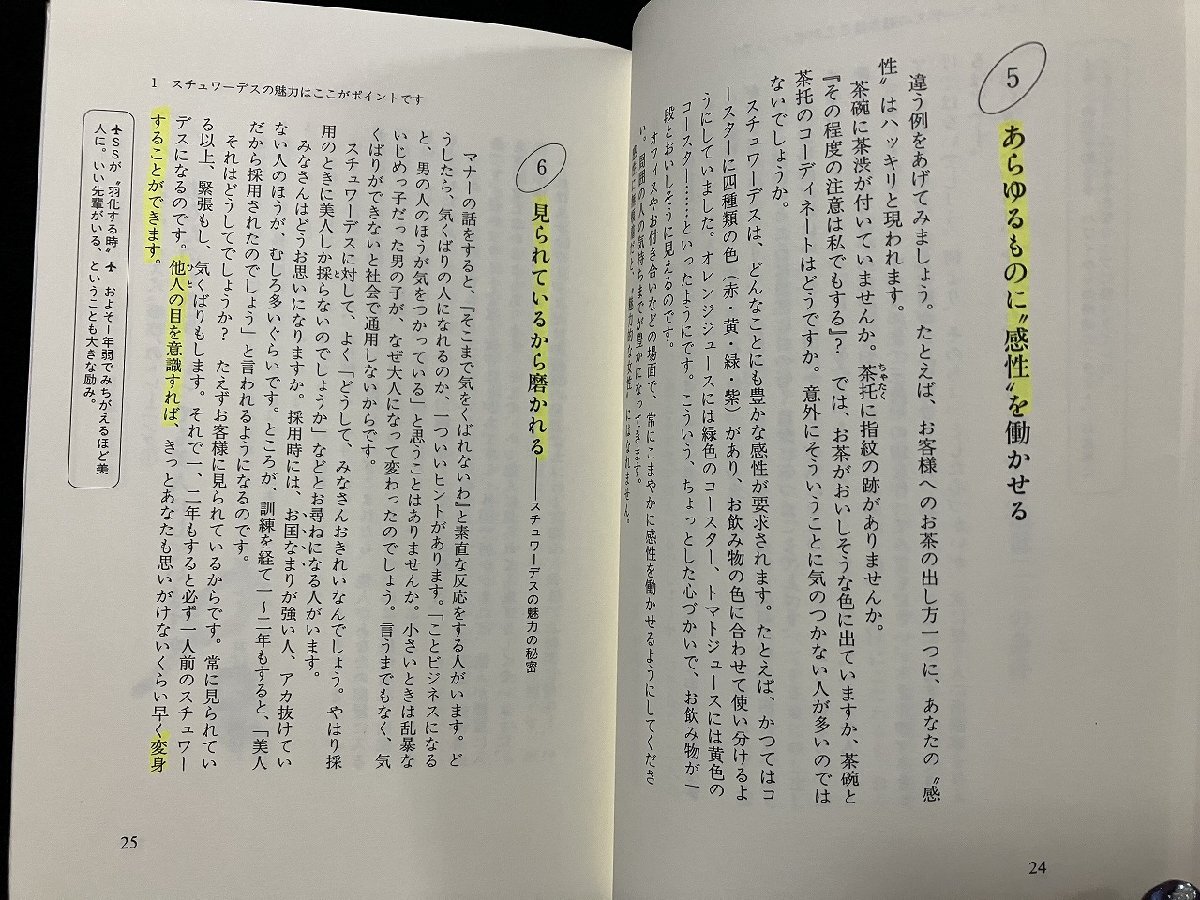 5
あらゆるものに〝感性〟を働かせる
違う例をあげてみましょう。たとえば、お客様へのお茶の出し方一つに、あなたの〝感
性〟はハッキリと現われます。
茶碗に茶渋が付いていませんか。茶托に指紋の跡がありませんか。
ちゃたく
『その程度の注意は私でもする』? では、お茶がおいしそうな色に出ていますか、茶碗と
茶托のコーディネートはどうですか。意外にそういうことに気のつかない人が多いのでは
ないでしょうか。
スチュワーデスは、どんなことにも豊かな感性が要求されます。たとえば、かつてはコ
ースターに四種類の色(赤・黄・緑・紫)があり、お飲み物の色に合わせて使い分けるよ
うにしていました。オレンジジュースには緑色のコースター、トマトジュースには黄色の
コースター……といったようにです。こういう、ちょっとした心づかいで、お飲み物が一
段とおいしそうに見えるのです。
オフィスやお付き合いなどの場面で、常にこまやかに感性を働かせるようにしてくださ
い。周囲の人の気持ちまでが豊かになってきます。
〝魅力的な女性〟にはなれません。
24
1 スチュワーデスの魅力にここがポイントです
6
見られているから磨かれる——スチュワーデスの魅力の秘密
マナーの話をすると、「そこまで気をくばれないわ」と素直な反応をする人がいます。ど
うしたら、気くばりの人になれるのか、一ついいヒントがあります。「ことビジネスになる
と、男の人のほうが気をつかっている」と思うことはありませんか。小さいときは乱暴な
いじめっ子だった男の子が、なぜ大人になって変わったのでしょう。言うまでもなく、気
くばりができないと社会で通用しないからです。
スチュワーデスに対して、よく「どうして、みなさんおきれいなんでしょう。やはり採
用のときに美人しか採らないのでしょうか」などとお尋ねになる人がいます。
と
みなさんはどうお思いになりますか。採用時には、お国なまりが強い人、アカ抜けてい
ない人のほうが、むしろ多いぐらいです。ところが、訓練を経て一〜二年もすると、「美人
だから採用されたのでしょう」と言われるようになるのです。
それはどうしてでしょうか? たえずお客様に見られているからです。常に見られてい
る以上、緊張もし、気くばりもします。それで一、二年もすると必ず一人前のスチュワー
デスになるのです。他人の目を意識すれば、きっとあなたも思いがけないくらい早く変身
ひと
することができます。
✈SSが〝羽化する時〟✈ およそ一年弱でみちがえるほど美
人に。いい先輩がいる、ということも大きな励み。
25